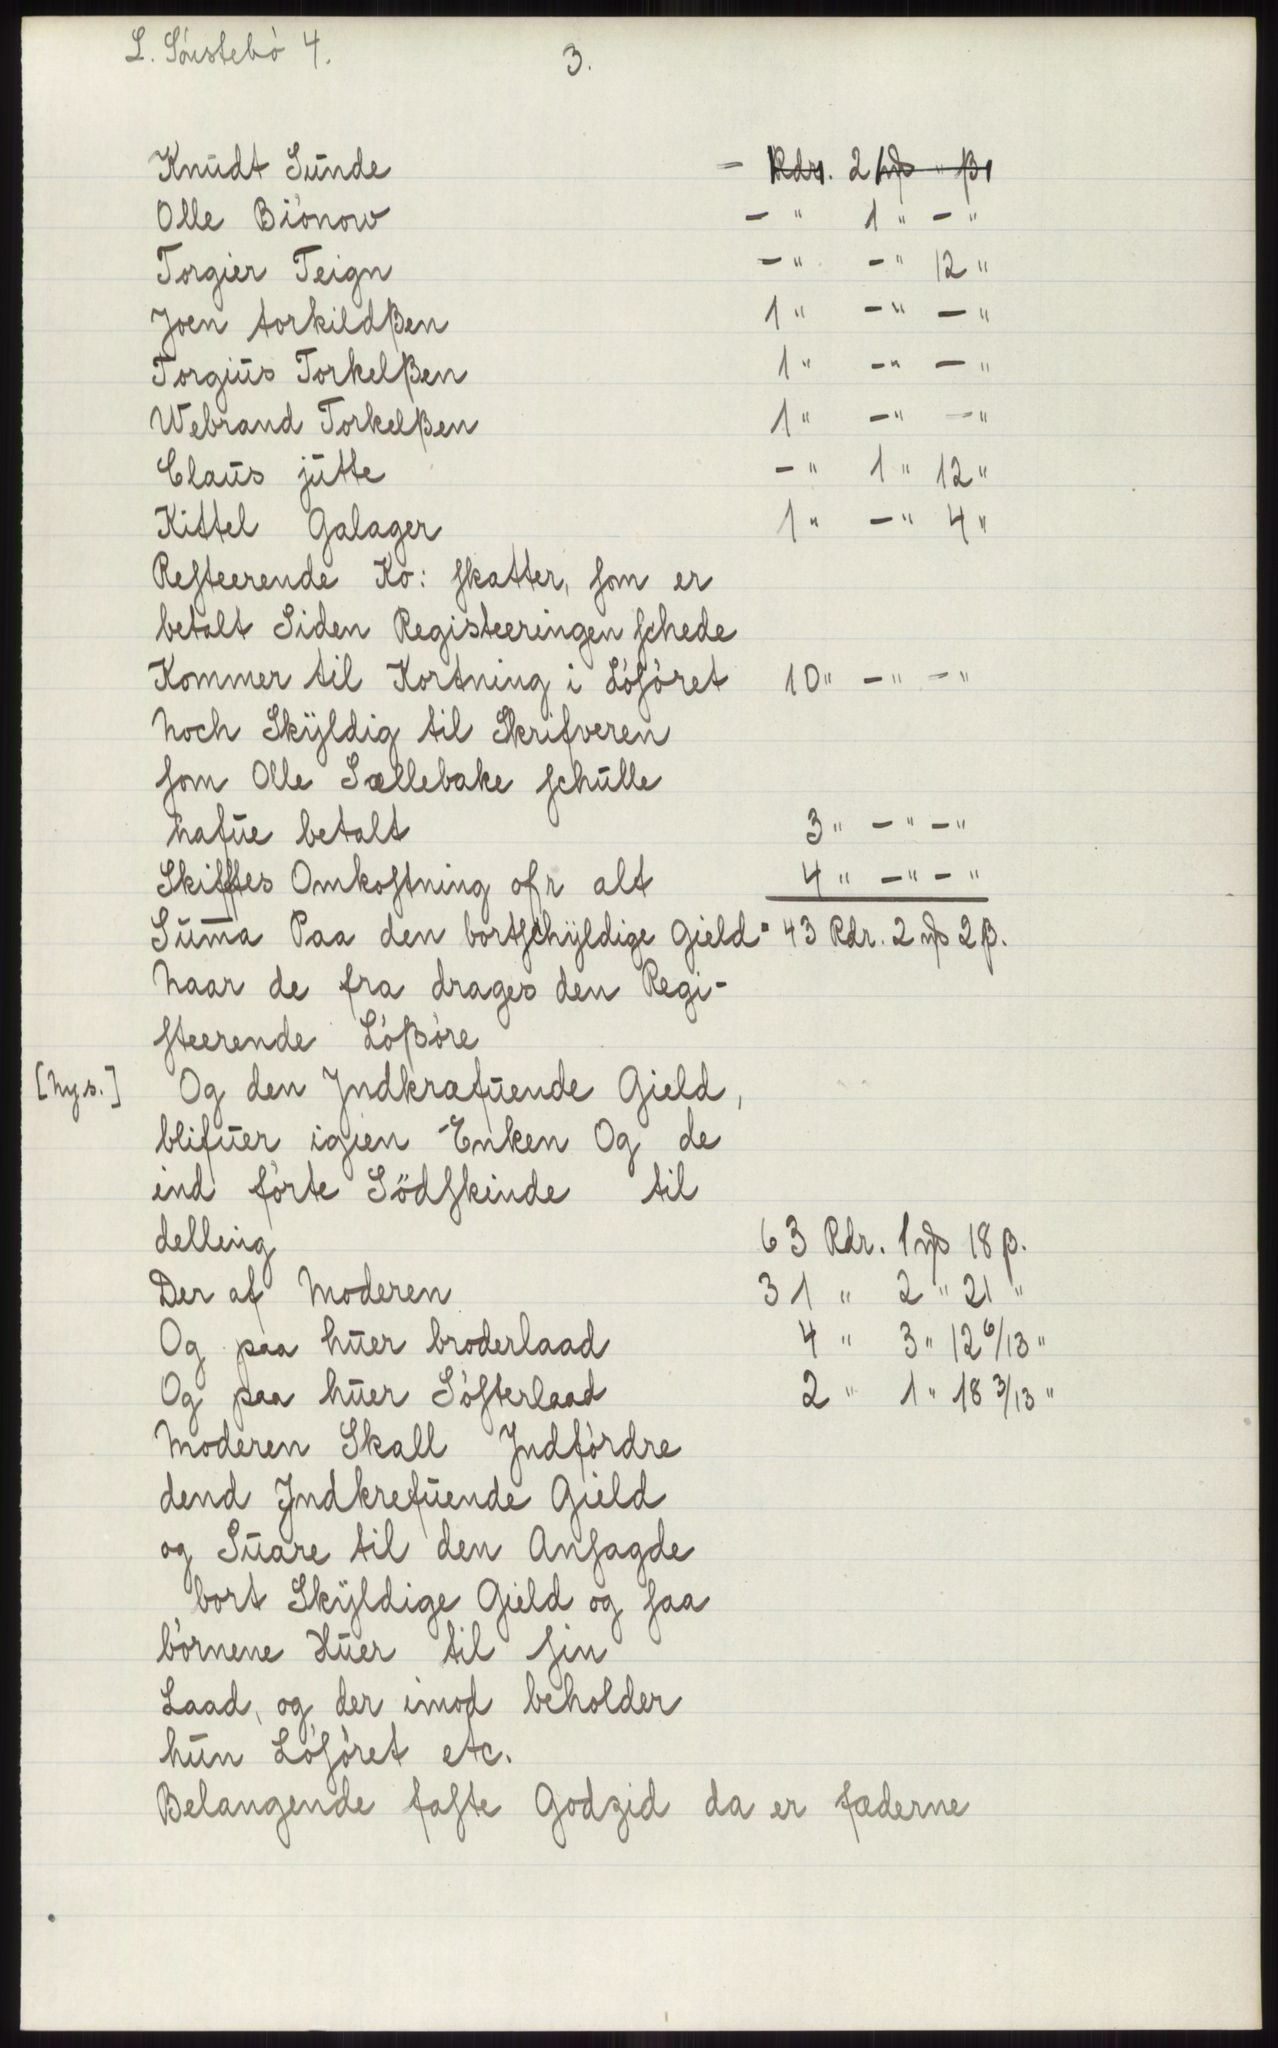 L. Sóustebò 4.
3.
Knŭdt Sŭnde - Rdr. 2 mþ " β
Olle Biònow - " 1 " - "
Torgier Teign - " - " 12 "
Joen torkildβen 1 " - " - "
Torgiŭs Torkelβen 1 " - " - "
Webrand Torkelβen 1 " - " - "
Claŭs jŭtte - " 1 " 12 "
Kittel Galager 1 " - " 4 "
Reſteerende Ko: ſkatter, ſom er
betalt Siden Registeeringen ſchede
Kommer til Kortning i Lóſóret 10 " - " - "
Noch Skÿldig til Skrifveren
ſom Olle Sællebake ſchŭlle
hafŭe betalt 3 " - " - "
Skifftes Omkoſtning ofr alt 4 " - " - "
Sum̄a Paa den bortſchÿldige Gield = 43 Rdr. 2 mþ 2 β.
Naar de fra drages den Regi-
ſteerende Lóβóre
[Ny s.] Og den Jndkrafŭende Gield,
blifŭer igien Enken Og de
ind fòrte Södſkinde til
delling 63 Rdr. 1 mþ 18 β.
Der af Moderen 31 " 2 " 21 "
Og paa hŭer broderlaad 4 " 3 " 12 6/13 "
Og paa hŭer Sòſterlaad 2 " 1 " 18 3/13 "
Moderen Skall Jndfòrdre
dend Jndkrefŭende Gield
og Sŭare til den Anſagde
bort Skÿldige Gield og ſaa
bòrnene Hŭer til ſin
Laad, og der imod beholder
hŭn Lóſòret etc.
Belangende faſte Godzid da er fæderne